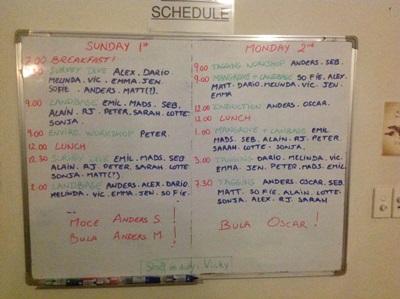 SCHEDULE
SUNDAY 1st
7.00 BREAKFAST!
SURVEY DIVE ALEX. DARIO.
MELINDA. VIC. EMMA. JEN.
SOFIE. ANDERS. MATT(?).
9.00 LANDBASE EMIL. MADS. SEB.
ALAIN. RJ. PETER. SARAH. LOTTE.
SONJA.
9.00 ENVIRO. WORKSHOP PETER.
12.00 LUNCH
12.30 SURVEY DIVE EMIL. MADS. SEB
ALAIN. RJ. PETER. SARAH. LOTTE.
SONJA. MATT(?)
2.00 LANDBASE ANDERS. ALEX. DARIO.
MELINDA. VIC. EMMA. JEN. SOFIE.
MOCE ANDERS S. !
BULA ANDERS M. !
MONDAY 2nd
9.00 TAGGING WORKSHOP ANDERS. SEB.
9.00 MANGROVE + LANDBASE SOFIE. ALEX.
MATT. DARIO. MELINDA. VIC. JEN.
EMMA
12.00 INDUCTION ANDERS. OSCAR.
12.00 LUNCH
1.00 MANGROVE + LANDBASE EMIL.
MADS. SEB. ALAIN. RJ. PETER.
SARAH. LOTTE. SONJA.
3.00 TAGGING DARIO. MELINDA. VIC.
EMMA. JEN. PETER. MADS. EMIL.
7.30 TAGGING ANDERS. OSCAR. SEB.
MATT. SOFIE. ALAIN. LOTTE.
SONJA. ALEX. RJ. SARAH
BULA OSCAR !
Staff on duty: Vicky